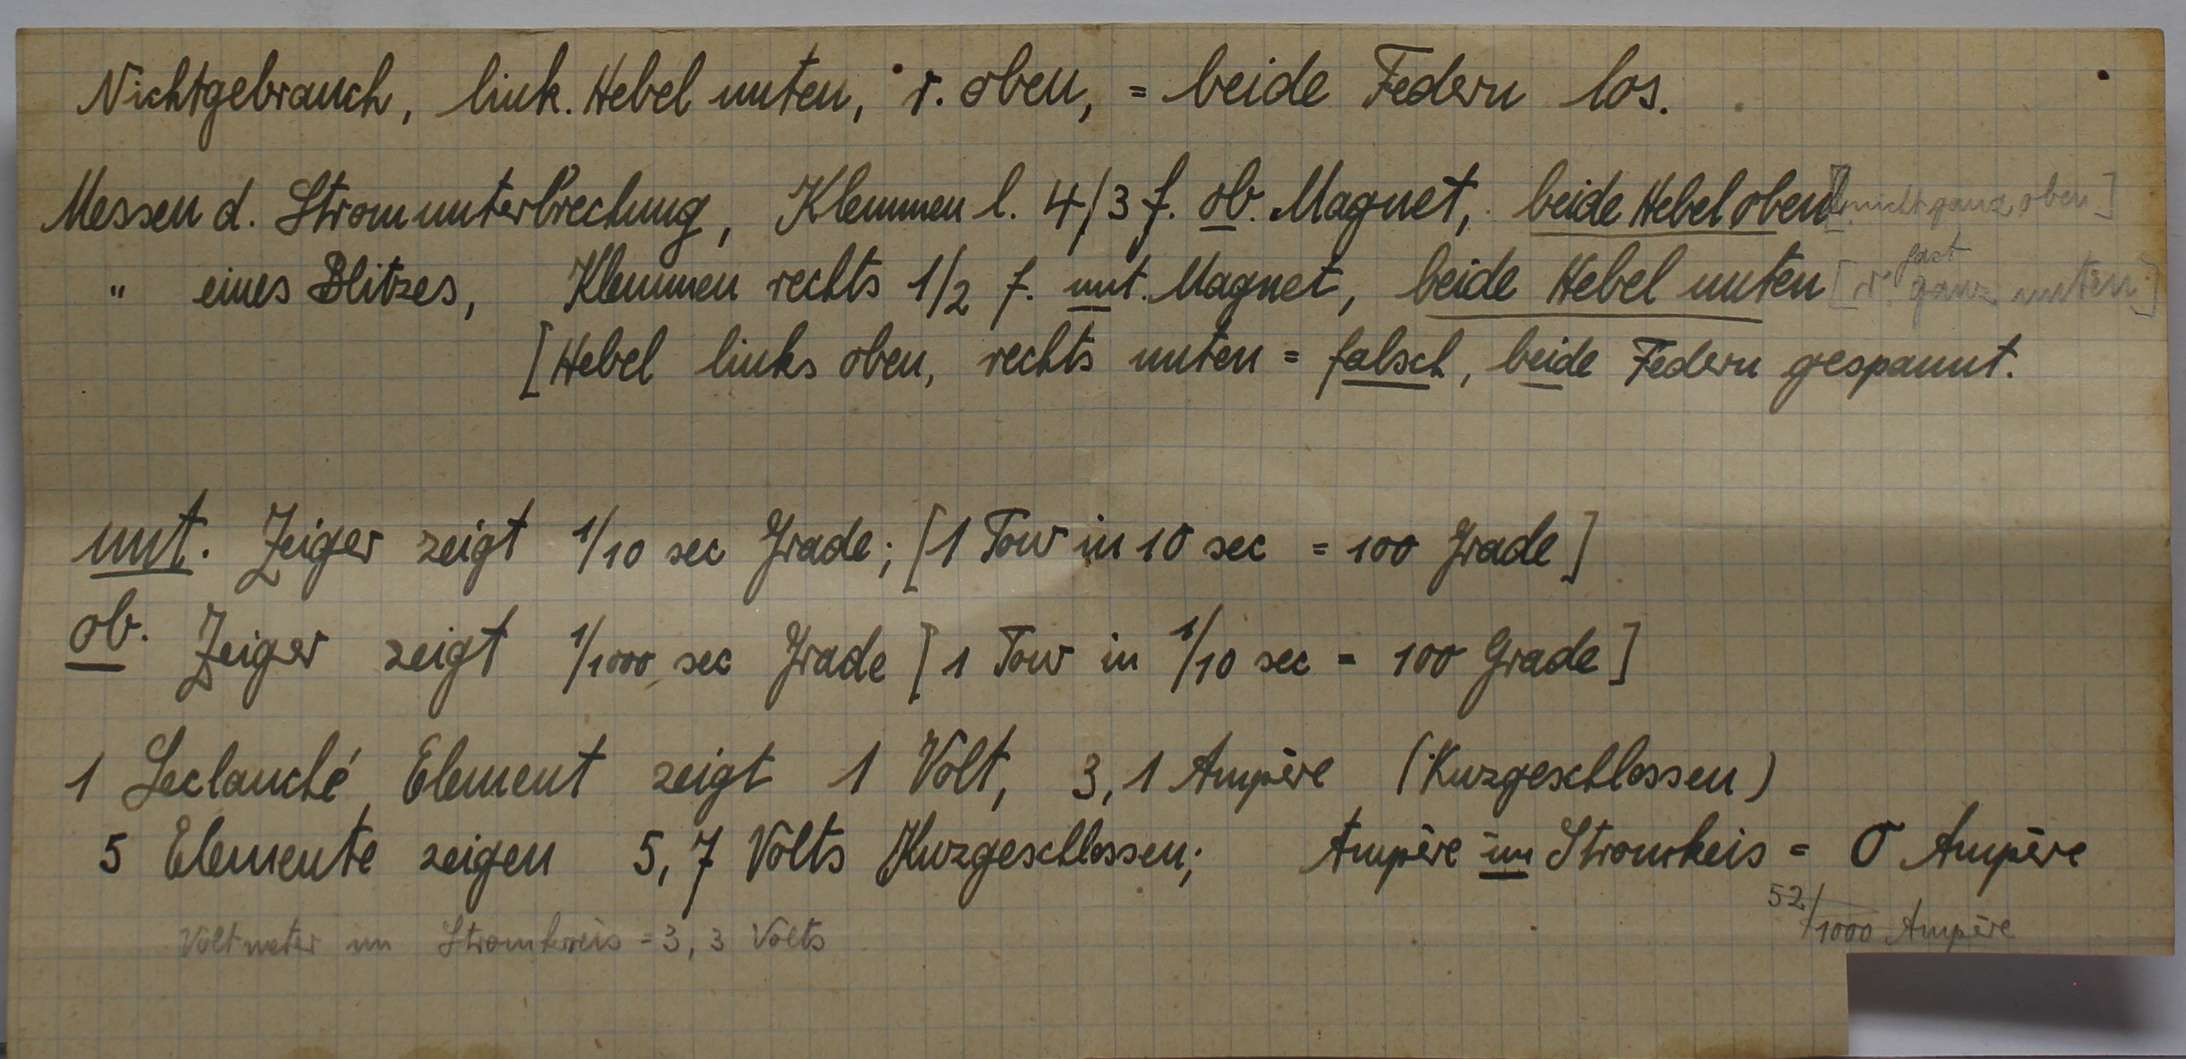 Nichtgebrauch, link. Hebel unten, r. oben, = beide Federn los.
Messen d. Stromunterbrechung, Klemmen l. 4/3 f. ob. Magnet, beide Hebel oben [nicht ganz oben]
" eines Blitzes, Klemmen rechts 1/2 f. unt. Magnet, beide Hebel unten [r. fast ganz unten]
[Hebel links oben, rechts unten = falsch, beide Federn gespannt.
unt. Zeiger zeigt 1/10 sec Grade; [1 Tour in 10 sec = 100 Grade]
ob. Zeiger zeigt 1/1000 sec Grade [1 Tour in 1/10 sec = 100 Grade]
1 Leclanché Element zeigt 1 Volt, 3,1 Ampère (Kurzgeschlossen)
5 Elemente zeigen 5,7 Volts Kurzgeschlossen; Ampère im Stromkeis = 0 Ampère
52/1000 Ampère
Voltmeter im Stromkreis = 3,3 Volts